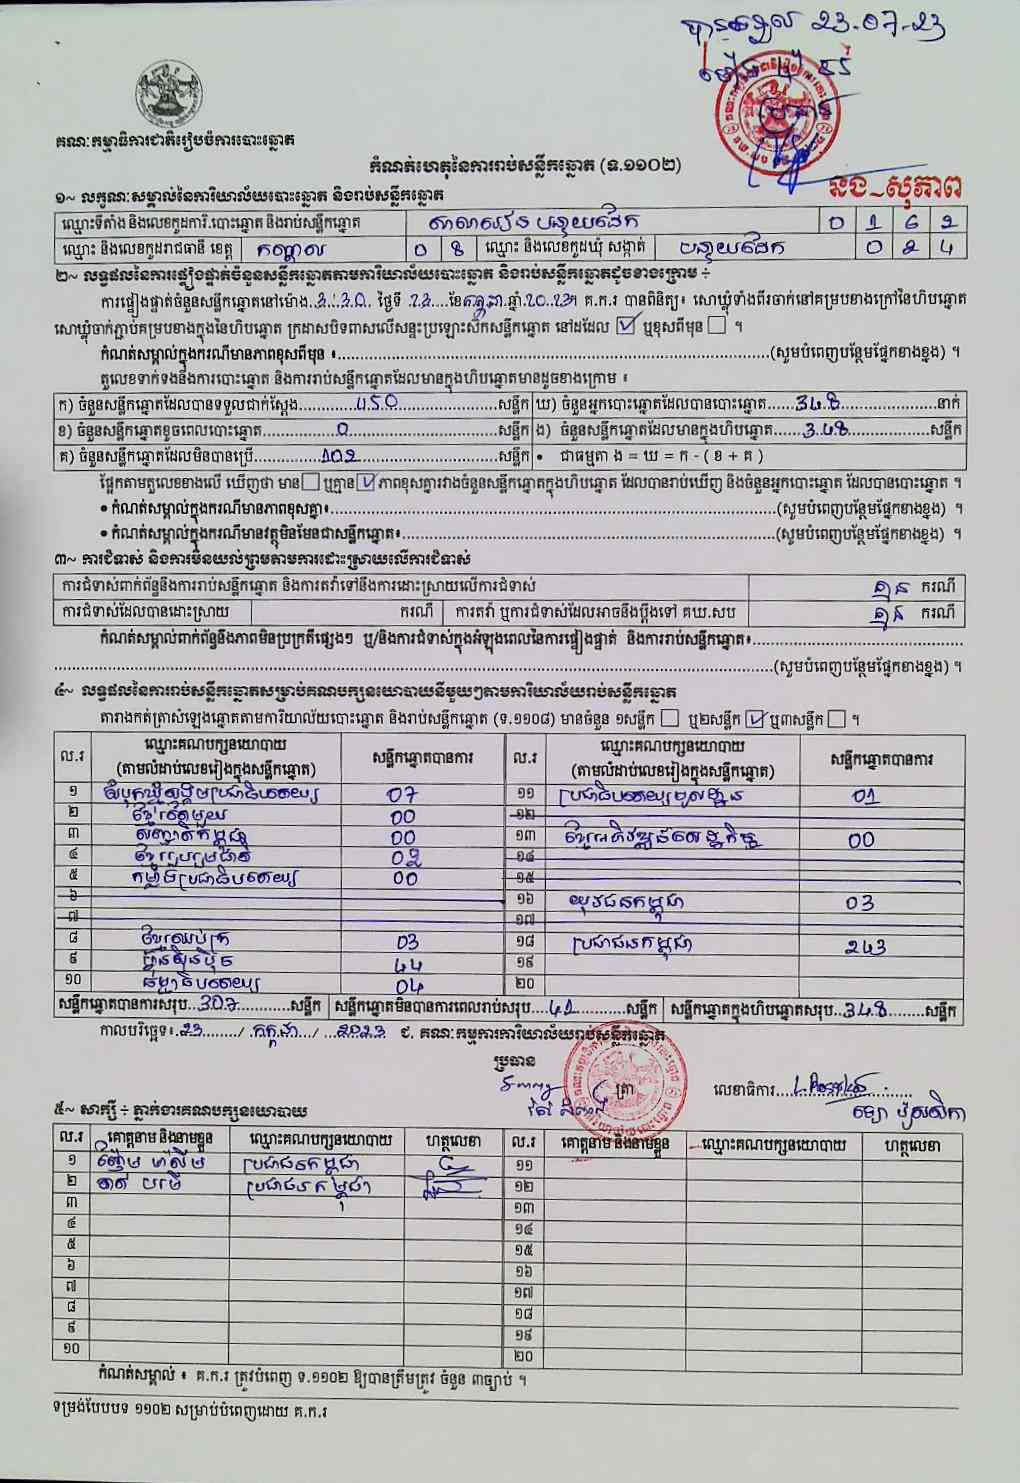 បានឃើញ 23.07.23
គណៈកម្មាធិការជាតិរៀបចំការបោះឆ្នោត
កំណត់ហេតុនៃការរាប់សន្លឹកឆ្នោត (ទ.១១០២)
នង សុភាព
១~ លក្ខណៈសម្គាល់នៃការិយាល័យបោះឆ្នោត និងរាប់សន្លឹកឆ្នោត
ឈ្មោះទីតាំង និងលេខកូដការិ.បោះឆ្នោត និងរាប់សន្លឹកឆ្នោត សាលារៀន បន្ទាយដែក 0 1 6 2
ឈ្មោះ និងលេខកូដរាជធានី ខេត្ត កណ្តាល 0 8 ឈ្មោះ និងលេខកូដឃុំ សង្កាត់ បន្ទាយដែក 0 2 4
២~ លទ្ធផលនៃការផ្ទៀងផ្ទាត់ចំនួនសន្លឹកឆ្នោតតាមការិយាល័យបោះឆ្នោត និងរាប់សន្លឹកឆ្នោតដូចខាងក្រោម ÷
ការផ្ទៀងផ្ទាត់ចំនួនសន្លឹកឆ្នោតនៅម៉ោង..3.30.. ថ្ងៃទី .23....ខែកក្កដា.ឆ្នាំ.20..23។ គ.ក.រ បានពិនិត្យ៖ សោឃ្លុំទាំងពីរចាក់នៅគម្របខាងក្រៅនៃហិបឆ្នោត
សោឃ្លុំចាក់ភ្ជាប់គម្របខាងក្នុងនៃហិបឆ្នោត ក្រដាសបិទពាសលើសន្ទះប្រឡោះសិកសន្លឹកឆ្នោត នៅដដែល ☑ ឬខុសពីមុន ☐ ។
កំណត់សម្គាល់ក្នុងករណីមានភាពខុសពីមុន ៖........(សូមបំពេញបន្ថែមផ្នែកខាងខ្នង) ។
តួលេខទាក់ទងនឹងការបោះឆ្នោត និងការរាប់សន្លឹកឆ្នោតដែលមានក្នុងហិបឆ្នោតមានដូចខាងក្រោម ៖
ក) ចំនួនសន្លឹកឆ្នោតដែលបានទទួលជាក់ស្តែង........450........សន្លឹក ឃ) ចំនួនអ្នកបោះឆ្នោតដែលបានបោះឆ្នោត......348........នាក់
ខ) ចំនួនសន្លឹកឆ្នោតខូចពេលបោះឆ្នោត........0........សន្លឹក ង) ចំនួនសន្លឹកឆ្នោតដែលមានក្នុងហិបឆ្នោត......348........សន្លឹក
គ) ចំនួនសន្លឹកឆ្នោតដែលមិនបានប្រើ........102........សន្លឹក • ជាធម្មតា ង = ឃ = ក - ( ខ + គ )
ផ្អែកតាមតួលេខខាងលើ ឃើញថា មាន ☐ ឬគ្មាន ☑ ភាពខុសគ្នារវាងចំនួនសន្លឹកឆ្នោតក្នុងហិបឆ្នោត ដែលបានរាប់ឃើញ និងចំនួនអ្នកបោះឆ្នោត ដែលបានបោះឆ្នោត ។
• កំណត់សម្គាល់ក្នុងករណីមានភាពខុសគ្នា៖........(សូមបំពេញបន្ថែមផ្នែកខាងខ្នង) ។
• កំណត់សម្គាល់ក្នុងករណីមានវត្ថុមិនមែនជាសន្លឹកឆ្នោត៖........(សូមបំពេញបន្ថែមផ្នែកខាងខ្នង) ។
៣~ ការជំទាស់ និងការមិនយល់ព្រមតាមការដោះស្រាយលើការជំទាស់
ការជំទាស់ពាក់ព័ន្ធនឹងការរាប់សន្លឹកឆ្នោត និងការតវ៉ាទៅនឹងការដោះស្រាយលើការជំទាស់ គ្មាន ករណី
ការជំទាស់ដែលបានដោះស្រាយ ករណី ការតវ៉ា ឬការជំទាស់ដែលអាចនឹងប្តឹងទៅ គឃ.សប គ្មាន ករណី
កំណត់សម្គាល់ពាក់ព័ន្ធនឹងភាពមិនប្រក្រតីផ្សេងៗ ឬ/និងការជំទាស់ក្នុងអំឡុងពេលនៃការផ្ទៀងផ្ទាត់ និងការរាប់សន្លឹកឆ្នោត៖........
........(សូមបំពេញបន្ថែមផ្នែកខាងខ្នង) ។
៤~ លទ្ធផលនៃការរាប់សន្លឹកឆ្នោតសម្រាប់គណបក្សនយោបាយនីមួយៗតាមការិយាល័យរាប់សន្លឹកឆ្នោត
តារាងកត់ត្រាសំឡេងឆ្នោតតាមការិយាល័យបោះឆ្នោត និងរាប់សន្លឹកឆ្នោត (ទ.១១០៨) មានចំនួន ១សន្លឹក ☐ ឬ២សន្លឹក ☑ ឬ៣សន្លឹក ☐ ។
ល.រ ឈ្មោះគណបក្សនយោបាយ (តាមលំដាប់លេខរៀងក្នុងសន្លឹកឆ្នោត) សន្លឹកឆ្នោតបានការ ល.រ ឈ្មោះគណបក្សនយោបាយ (តាមលំដាប់លេខរៀងក្នុងសន្លឹកឆ្នោត) សន្លឹកឆ្នោតបានការ
១ សំបុកឃ្មុំសង្គមប្រជាធិបតេយ្យ 07 ១១ ប្រជាធិបតេយ្យមូលដ្ឋាន 01
២ ខ្មែរតែមួយ 00 ១២
៣ សញ្ជាតិកម្ពុជា 00 ១៣ ខ្មែរអភិវឌ្ឍន៍សេដ្ឋកិច្ច 00
៤ ខ្មែររួបរួមជាតិ 02 ១៤
៥ កម្លាំងប្រជាធិបតេយ្យ 00 ១៥
៦ ១៦ យុវជនកម្ពុជា 03
៧ ១៧
៨ ខ្មែរឈប់ក្រ 03 ១៨ ប្រជាជនកម្ពុជា 243
៩ ហ៊្វុនស៊ិនប៉ិច 44 ១៩
១០ ធម្មាធិបតេយ្យ 04 ២០
សន្លឹកឆ្នោតបានការសរុប..307........សន្លឹក សន្លឹកឆ្នោតមិនបានការពេលរាប់សរុប....41........សន្លឹក សន្លឹកឆ្នោតក្នុងហិបឆ្នោតសរុប..348........សន្លឹក
កាលបរិច្ឆេទ៖.23......../.កក្កដា..../...2023 ជ. គណៈកម្មការការិយាល័យរាប់សន្លឹកឆ្នោត
ប្រធាន
ត្រា លេខាធិការ........
៥~ សាក្សី ÷ ភ្នាក់ងារគណបក្សនយោបាយ
ល.រ គោត្តនាម និងនាមខ្លួន ឈ្មោះគណបក្សនយោបាយ ហត្ថលេខា ល.រ គោត្តនាម និងនាមខ្លួន ឈ្មោះគណបក្សនយោបាយ ហត្ថលេខា
១ ប្រជាជនកម្ពុជា ១១
២ ប្រជាជនកម្ពុជា ១២
៣ ១៣
៤ ១៤
៥ ១៥
៦ ១៦
៧ ១៧
៨ ១៨
៩ ១៩
១០ ២០
កំណត់សម្គាល់ ៖ គ.ក.រ ត្រូវបំពេញ ទ.១១០២ ឱ្យបានត្រឹមត្រូវ ចំនួន ៣ច្បាប់ ។
ទម្រង់បែបបទ ១១០២ សម្រាប់បំពេញដោយ គ.ក.រ